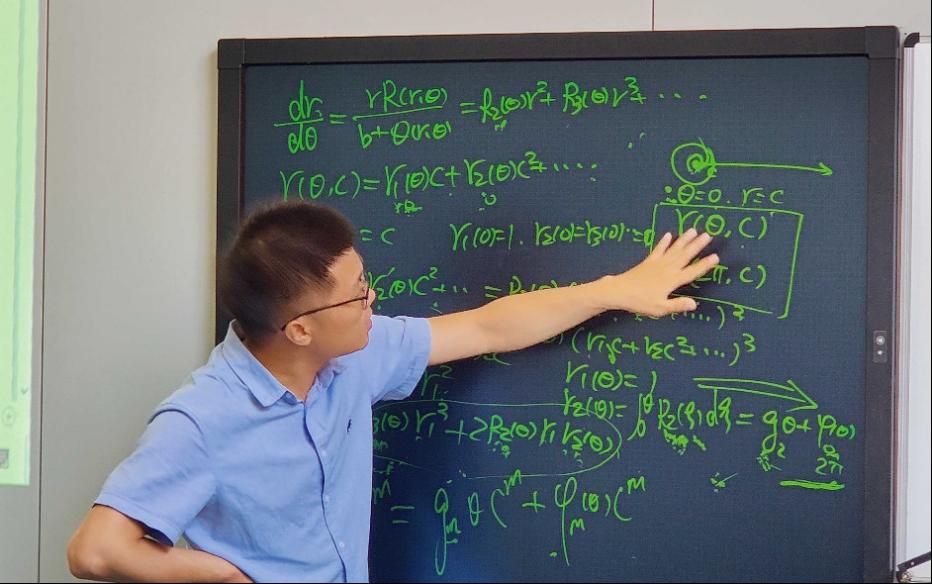 dr/dθ = rR(r,θ)/(b+Θ(r,θ)) = R₂(θ)r²+ R₃(θ)r³+ ....
r(θ,c)=r₁(θ)c+r₂(θ)c²+....
θ=0. r=c
= c r₁(0)=1. r₂(0)=r₃(0)
r(θ,c)
r₂'(θ)c²+... =
π, c)
...)²
(r₁c+r₂c²+...)³
r₁²
r₁(θ)=1
r₂(θ)=∫₀^θ R₂(ξ)dξ = g₂θ+φ₂(θ)
2π
(θ)r₁³+2R₂(θ)r₁r₂(θ)
= gₘθC^m+φₘ(θ)C^m